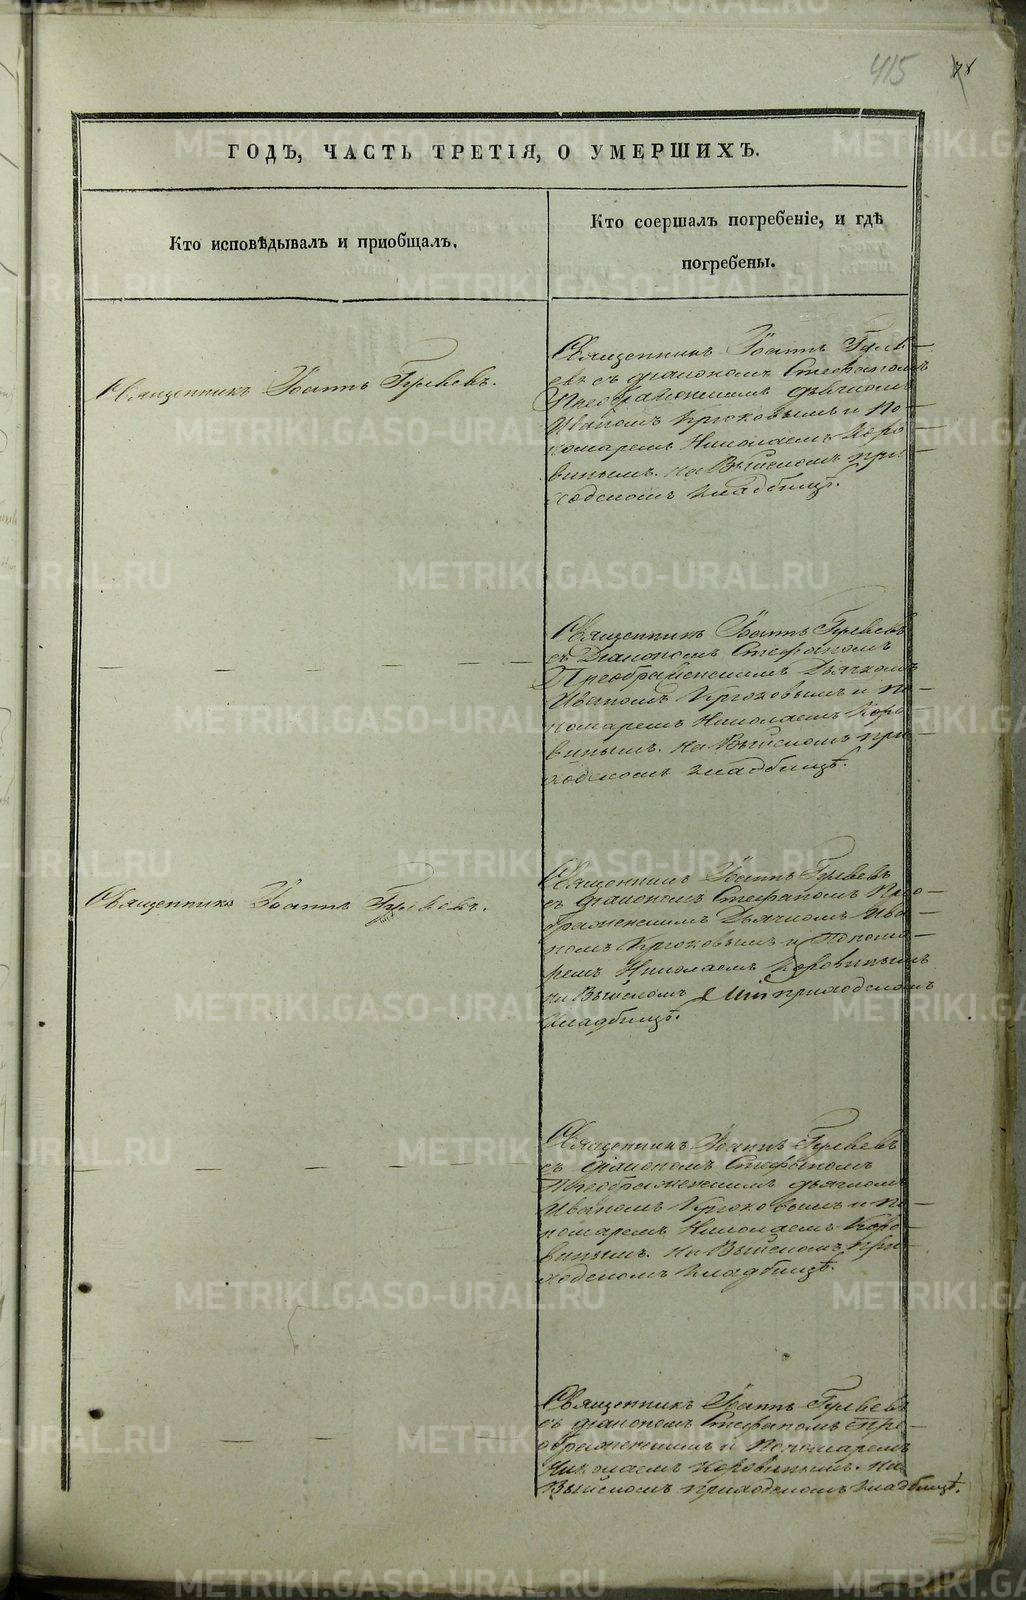 415
78
ГОДЪ, ЧАСТЬ ТРЕТІЯ, О УМЕРШИХЪ.
Кто исповѣдывалъ и приобщалъ.
Кто соершалъ погребеніе, и гдѣ
погребены.
Священникъ Іоаннъ Гурьевъ.
Священникъ Іоаннъ Гурь-
евъ съ діакономъ Стефаномъ
Преображенскимъ дьячкомъ
Иваномъ Крюковымъ и По-
номаремъ Николаемъ Коро-
винымъ. на Выйскомъ при-
ходскомъ кладбищѣ.
Священникъ Іоаннъ Гурьевъ
съ Діакономъ Стефаномъ
Преображенскимъ Дьячкомъ
Иваномъ Крюковымъ и По-
номаремъ Николаемъ Коро-
винымъ. на Выйскомъ при-
ходскомъ кладбищѣ.
Священникъ Іоаннъ Гурьевъ.
Священникъ Іоаннъ Гурьевъ
съ діакономъ Стефаномъ Прео-
браженскимъ Дьячкомъ Ива-
номъ Крюковымъ и Понома-
ремъ Николаемъ Коровинымъ
на Выйскомъ приходскомъ
кладбищѣ.
Священникъ Іоаннъ Гурьевъ
съ діакономъ Стефаномъ
Преображенскимъ дьячкомъ
Иваномъ Крюковымъ и По-
номаремъ Николаемъ Коро-
винымъ. на Выйскомъ при-
ходскомъ кладбищѣ.
Священникъ Іоаннъ Гурьевъ
съ діакономъ Стефаномъ Прео-
браженскимъ и Пономаремъ
Николаемъ Коровинымъ. На
Выйскомъ приходскомъ кладбищѣ.
METRIKI.GASO-URAL.RU